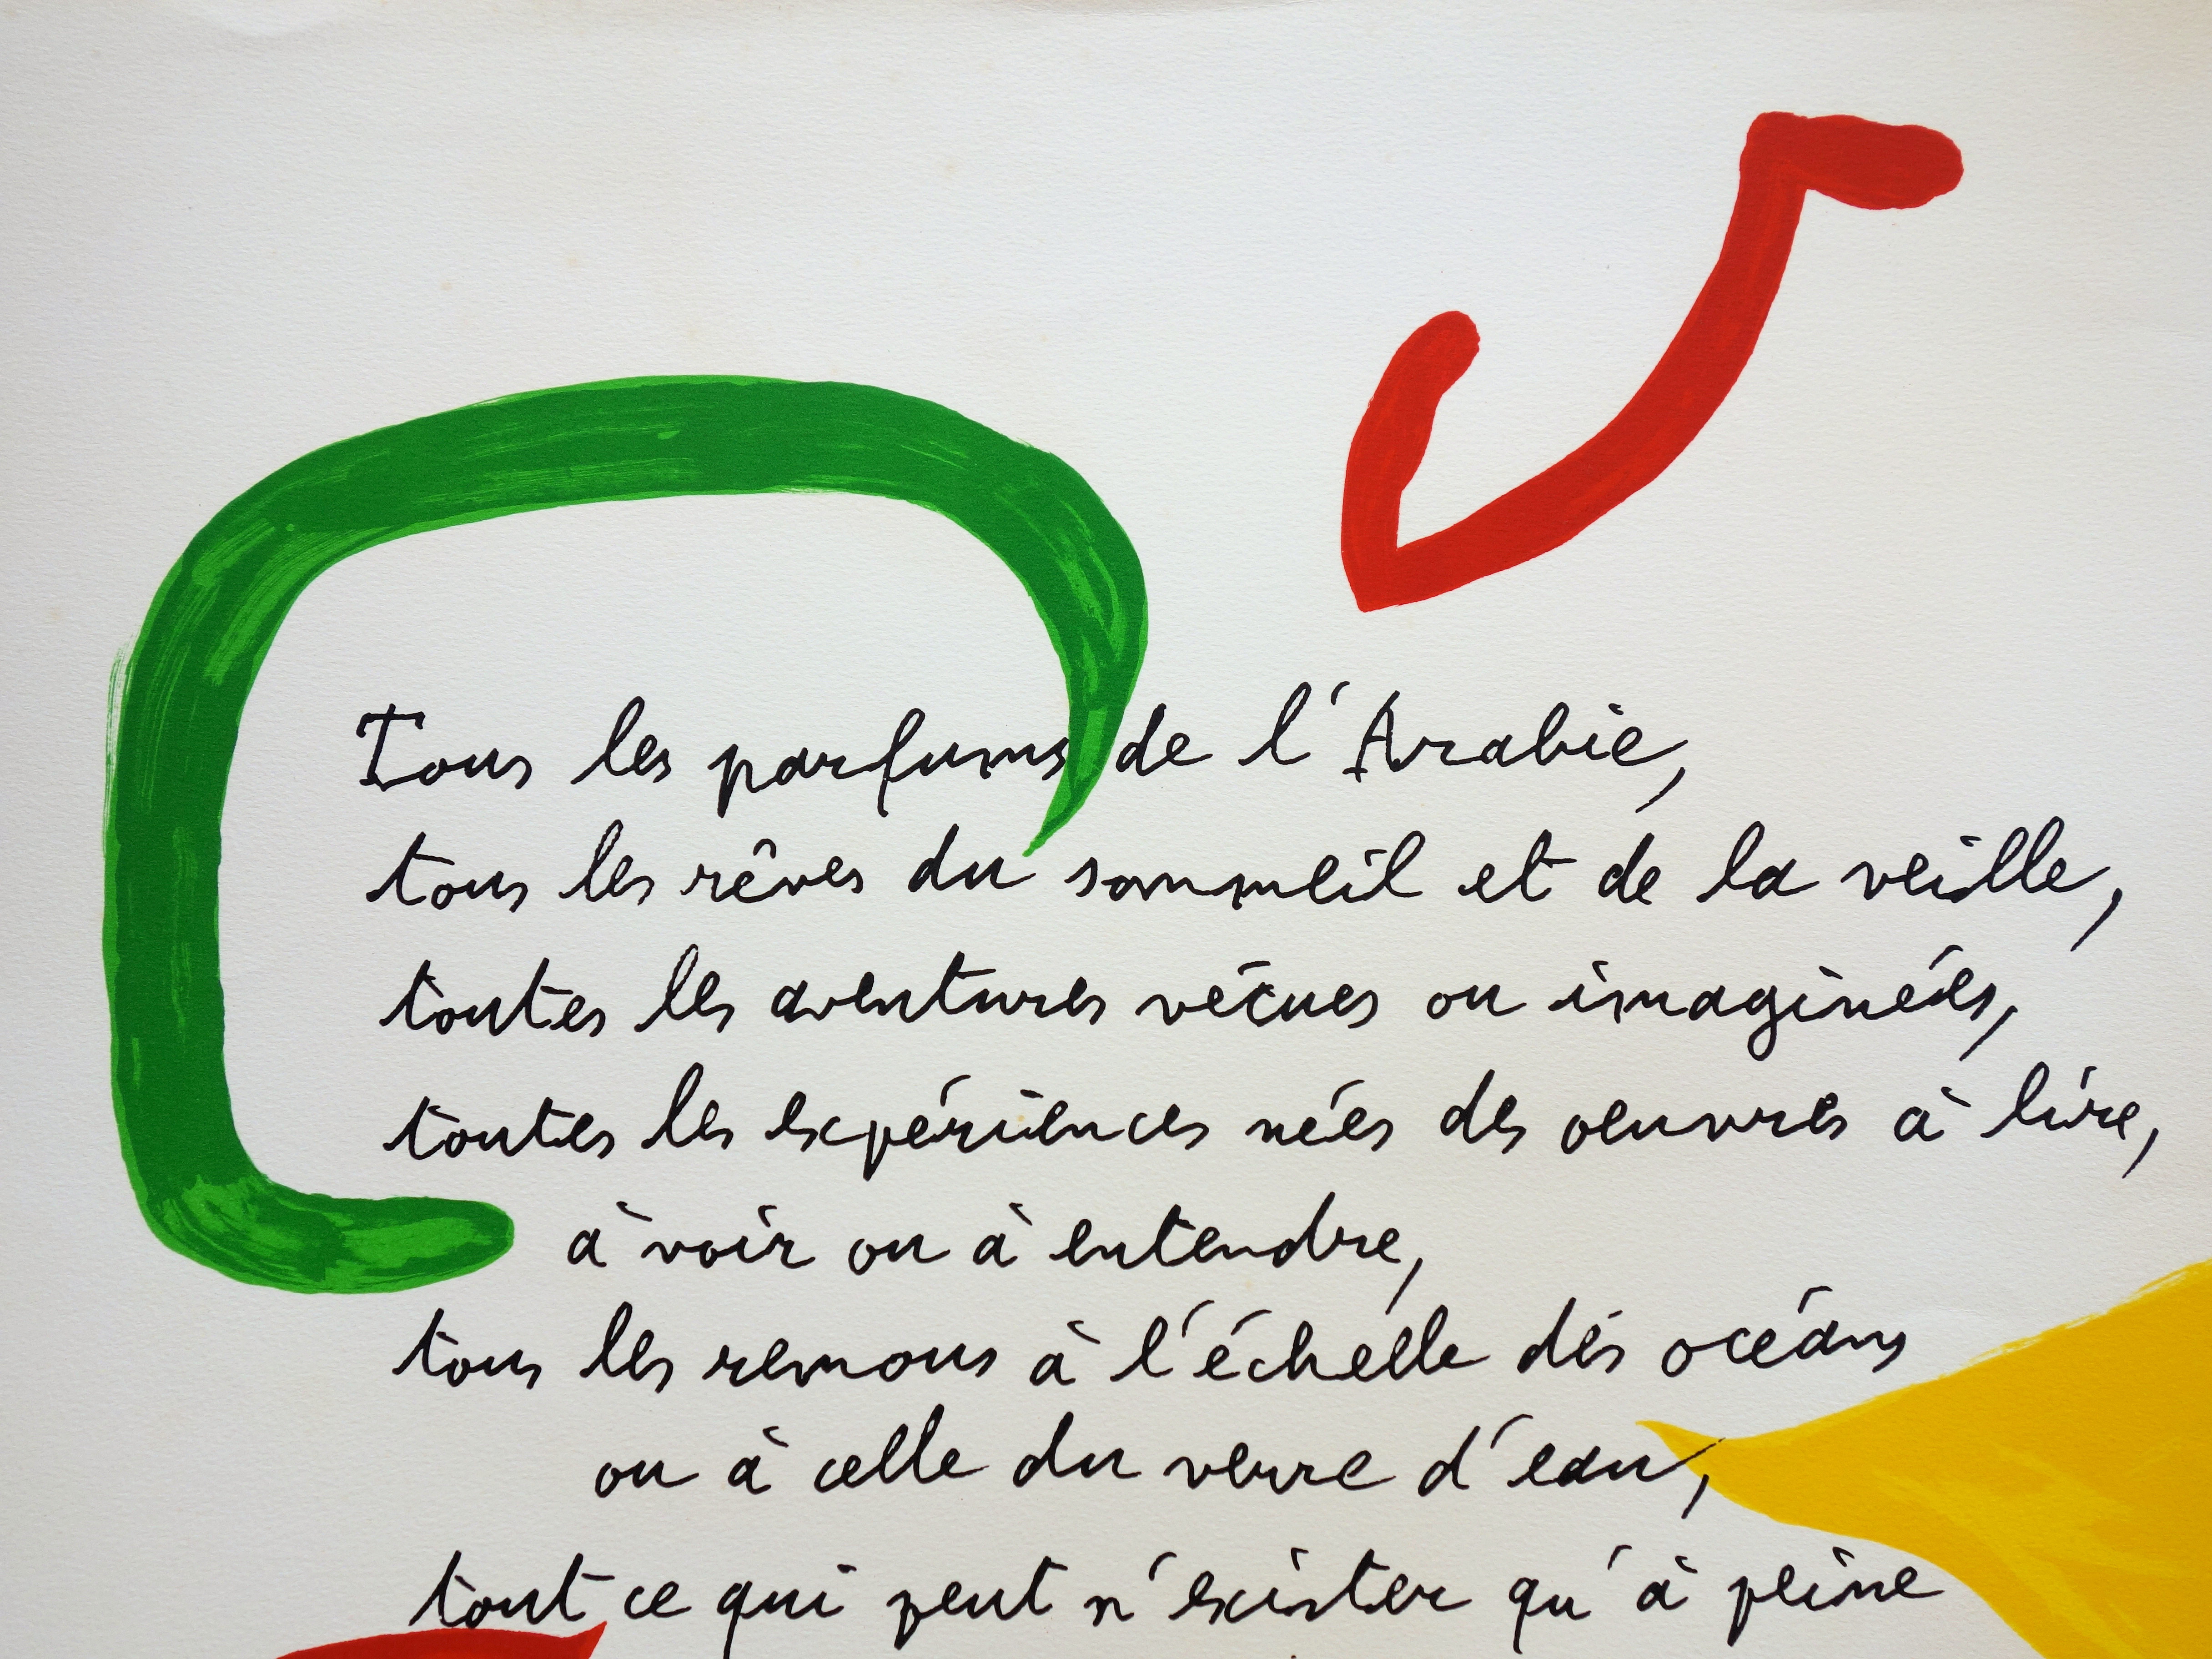 Tous les parfums de l'Arabie,
tous les rêves du sommeil et de la veille,
toutes les aventures vécues ou imaginées,
toutes les expériences nées des oeuvres à lire,
à voir ou à entendre,
tous les remous à l'échelle des océans
ou à celle du verre d'eau,
tout ce qui peut n'exister qu'à peine